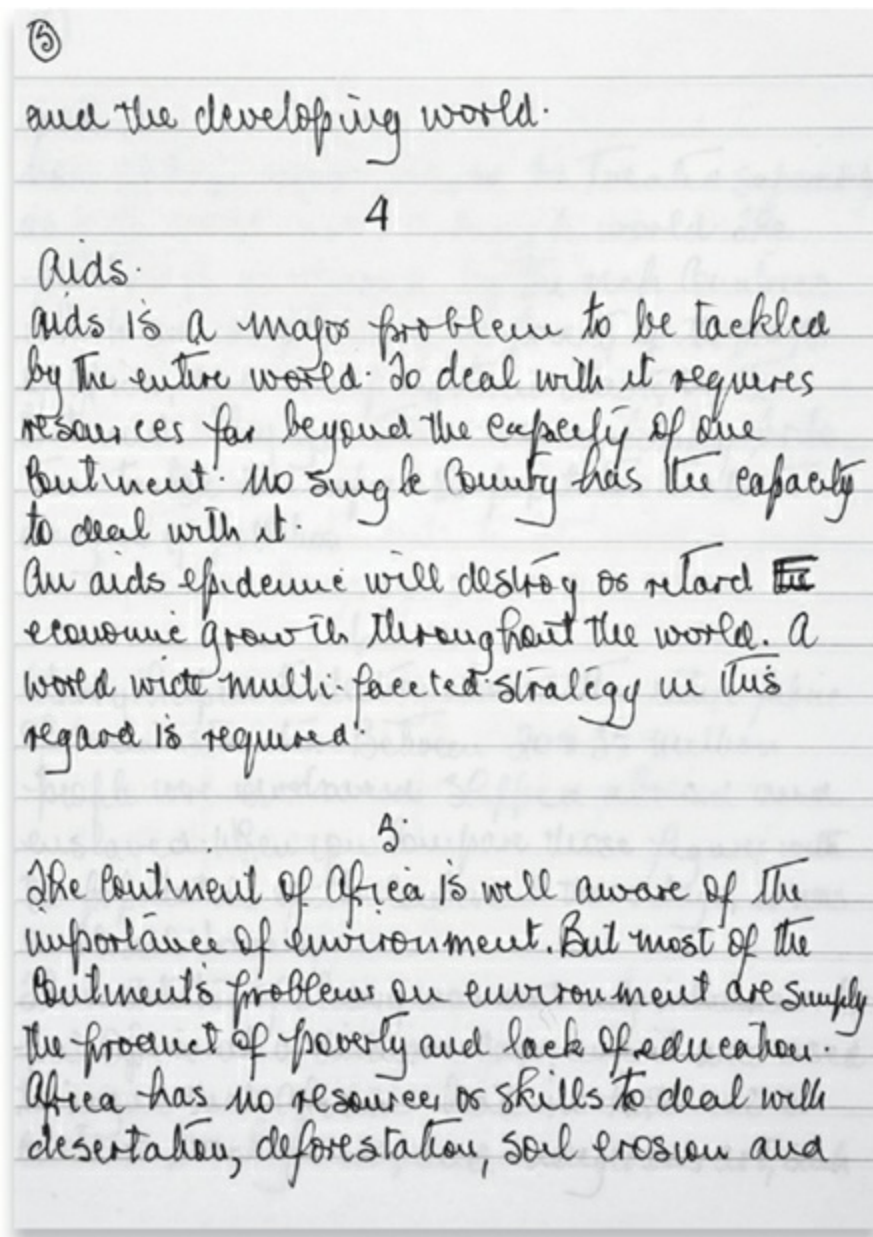 5
and the developing world.
4
Aids.
Aids is a major problem to be tackled
by the entire world. To deal with it requires
resources far beyond the capacity of one
Continent. No single Country has the capacity
to deal with it.
An aids epidemic will destroy or retard
economic growth throughout the world. A
world wide multi-faceted strategy in this
regard is required.
5.
The Continent of Africa is well aware of the
importance of environment. But most of the
Continent's problems on environment are simply
the product of poverty and lack of education.
Africa has no resources or skills to deal with
desertation, deforestation, soil erosion and